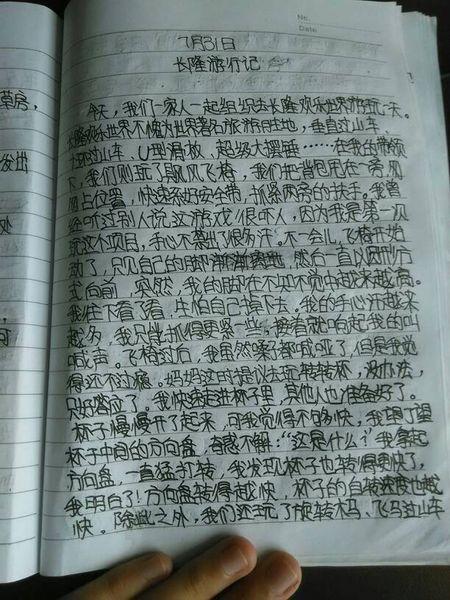 No.
Date
7月31日
长隆游行记
今天,我们一家人一起组织去长隆欢乐世界游玩一天。
长隆欢乐世界不愧为世界著名旅游胜地,垂直过山车、
十环过山车、U型滑板、超级大摆锤……在我的带领
下,我们则玩了飓风飞椅,我们把背包甩在一旁,风
风占位置,快速系好安全带,抓紧两旁的扶手,我曾
经听过别人说这游戏很吓人,因为我是第一次
玩这个项目,手心不禁出了很多汗。不一会儿,飞椅开始
动了,只见自己的脚渐渐离地,然后一直以圆形方
式向前,突然,我的脚在不知不觉中越来越高。
我往下看了看,生怕自己掉下去。我的手心汗越来
越多,我只能抓得更紧一些,接着就响起我的叫
喊声。飞椅过后,我虽然嗓子都喊哑了,但是我觉
得还不过瘾。妈妈这时提议去玩转转杯,没办法,
只好答应了。我快速走进杯子里,其他人也准备好了。
杯子慢慢开了起来,可我觉得不够快,我望了望
杯子中间的方向盘,奇感不解:“这是什么?”我拿起
方向盘,一直猛打转,我发现杯子也转得更快了,
我明白了!方向盘转得越快,杯子的自转速度也越
快。除此之外,我们还玩了旋转木马、飞马过山车
草房,
发出
处
可